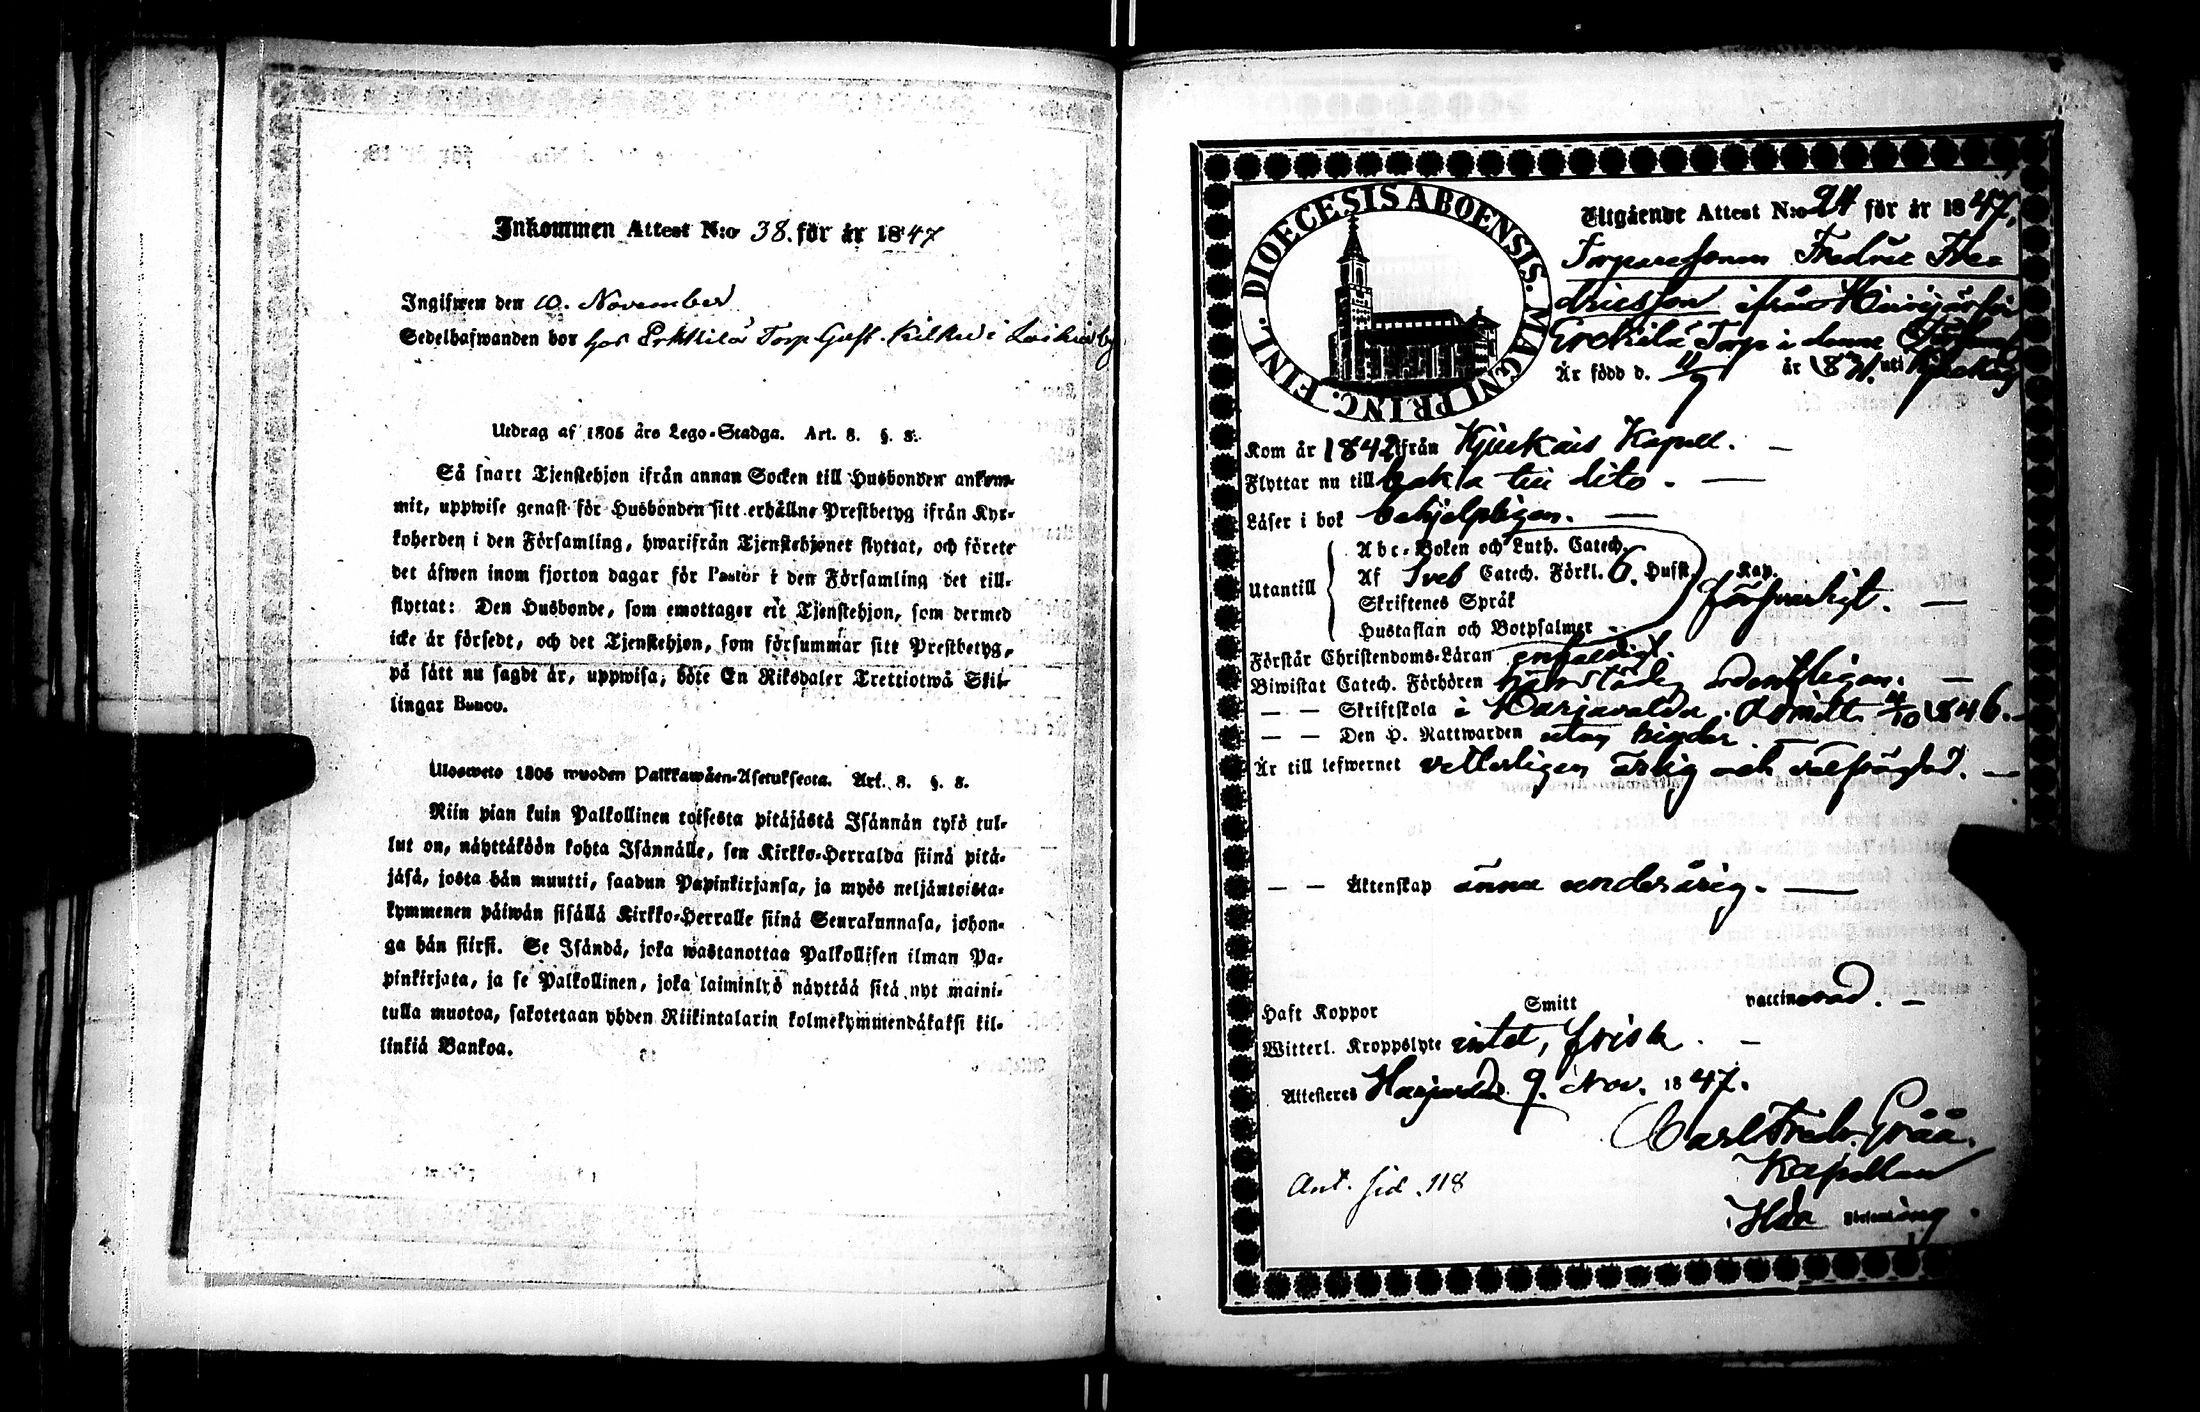 Inkommen Attest N:o 38. för år 1847
Ingifwen den 10. November
Sedelhafwanden bor hos Erkkilä Torp Gust. Kilku i
Utdrag af 1805 års Lego-Stadga. Art. 8. §. 8.
Så snart Tjenstehjon ifrån annan Socken till Husbonden ankom-
mit, uppwise genast för Husbonden sitt erhållne Prestbetyg ifrån Kyr-
koherden i den Församling, hwarifrån Tjenstehjonet flyttat, och förete
det äfwen inom fjorton dagar för Pastor i den Församling det till-
flyttat: Den Husbonde, som emottager ett Tjenstehjon, som dermed
icke är försedt, och det Tjenstehjon, som försummar sitt Prestbetyg,
på sätt nu sagdt är, uppwisa, böte En Riksdaler Trettiotwå Skil-
lingar Banco.
Ulosweto 1805 wuoden Palkkawäen-Asetuksesta. Art. 8. §. 8.
Niin pian kuin Palkollinen toisesta pitäjästä Isännän tykö tul-
lut on, näyttäköön kohta Isännälle, sen Kirkko-Herralda siinä pitä-
jäsä, josta hän muutti, saadun Papinkirjansa, ja myös neljäntoista-
kymmenen päiwän sisällä Kirkko-Herralle siinä Seurakunnasa, johon-
ga hän siirsi. Se Isändä, joka wastanottaa Palkollisen ilman Pa-
pinkirjata, ja se Palkollinen, joka laiminlyö näyttää sitä nyt maini-
tulla muotoa, sakotetaan yhden Riikintalarin kolmekymmendäkaksi kil-
linkiä Bankoa.
FINL. DIOECESIS ABOENSIS. MAGNI PRINC.
Utgående Attest N:o 24 för år 1847,
Torparesonen Fredric
ericsson ifrån
Erckilä Torp i denna
Är född d. 11/9 år 1831. uti
Kom år 1842 ifrån Kjulais Kapell. —
Flyttar nu till baka till dito. —
Läser i bok behjelpligen. —
Utantill
Abc-Boken och Luth. Catech.
Af Sveb Catech. Förkl. 6. Hufst. Kap.
Skriftenes Språk
försvarligt. —
Hustaflan och Botpsalmer
Förstår Christendoms-Läran enfaldigt.
Biwistat Catech. Förhören ordentligen. —
— — Skriftskola i Harjavalda. Admitt. 1846. —
— — Den H. Nattwarden utan hinder. —
Är till lefwernet vetterligen ärlig och välfrägdad. —
— — Äktenskap ännu underårig. —
Haft Koppor Smitt vaccinerad. —
Witterl. Kroppslyte intet, frisk. —
Attesteres Harjavalda 9. Nov. 1847.
Carl Fredr. Gråå.
Kapellan
Ant. sid. 118